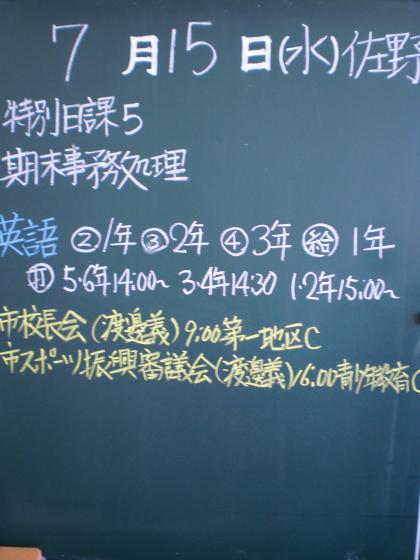 7月15日(水)佐野
特別日課5
期末事務処理
英語 ②1年 ③2年 ④3年 ㊕ 1年
5・6年14:00~ 3・4年14:30 1・2年15:00~
市校長会(渡邉義)9:00第一地区C
市スポーツ振興審議会(渡邉義)16:00青少年教育C